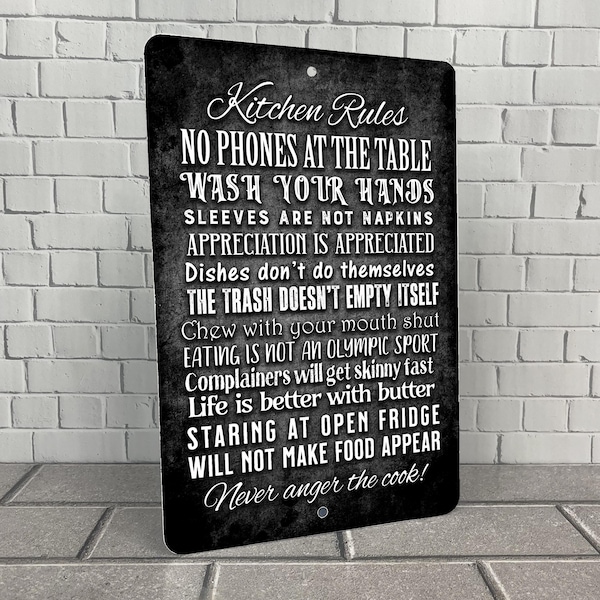 Kitchen Rules
NO PHONES AT THE TABLE
WASH YOUR HANDS
SLEEVES ARE NOT NAPKINS
APPRECIATION IS APPRECIATED
Dishes don't do themselves
THE TRASH DOESN'T EMPTY ITSELF
Chew with your mouth shut
EATING IS NOT AN OLYMPIC SPORT
Complainers will get skinny fast
Life is better with butter
STARING AT OPEN FRIDGE
WILL NOT MAKE FOOD APPEAR
Never anger the cook!